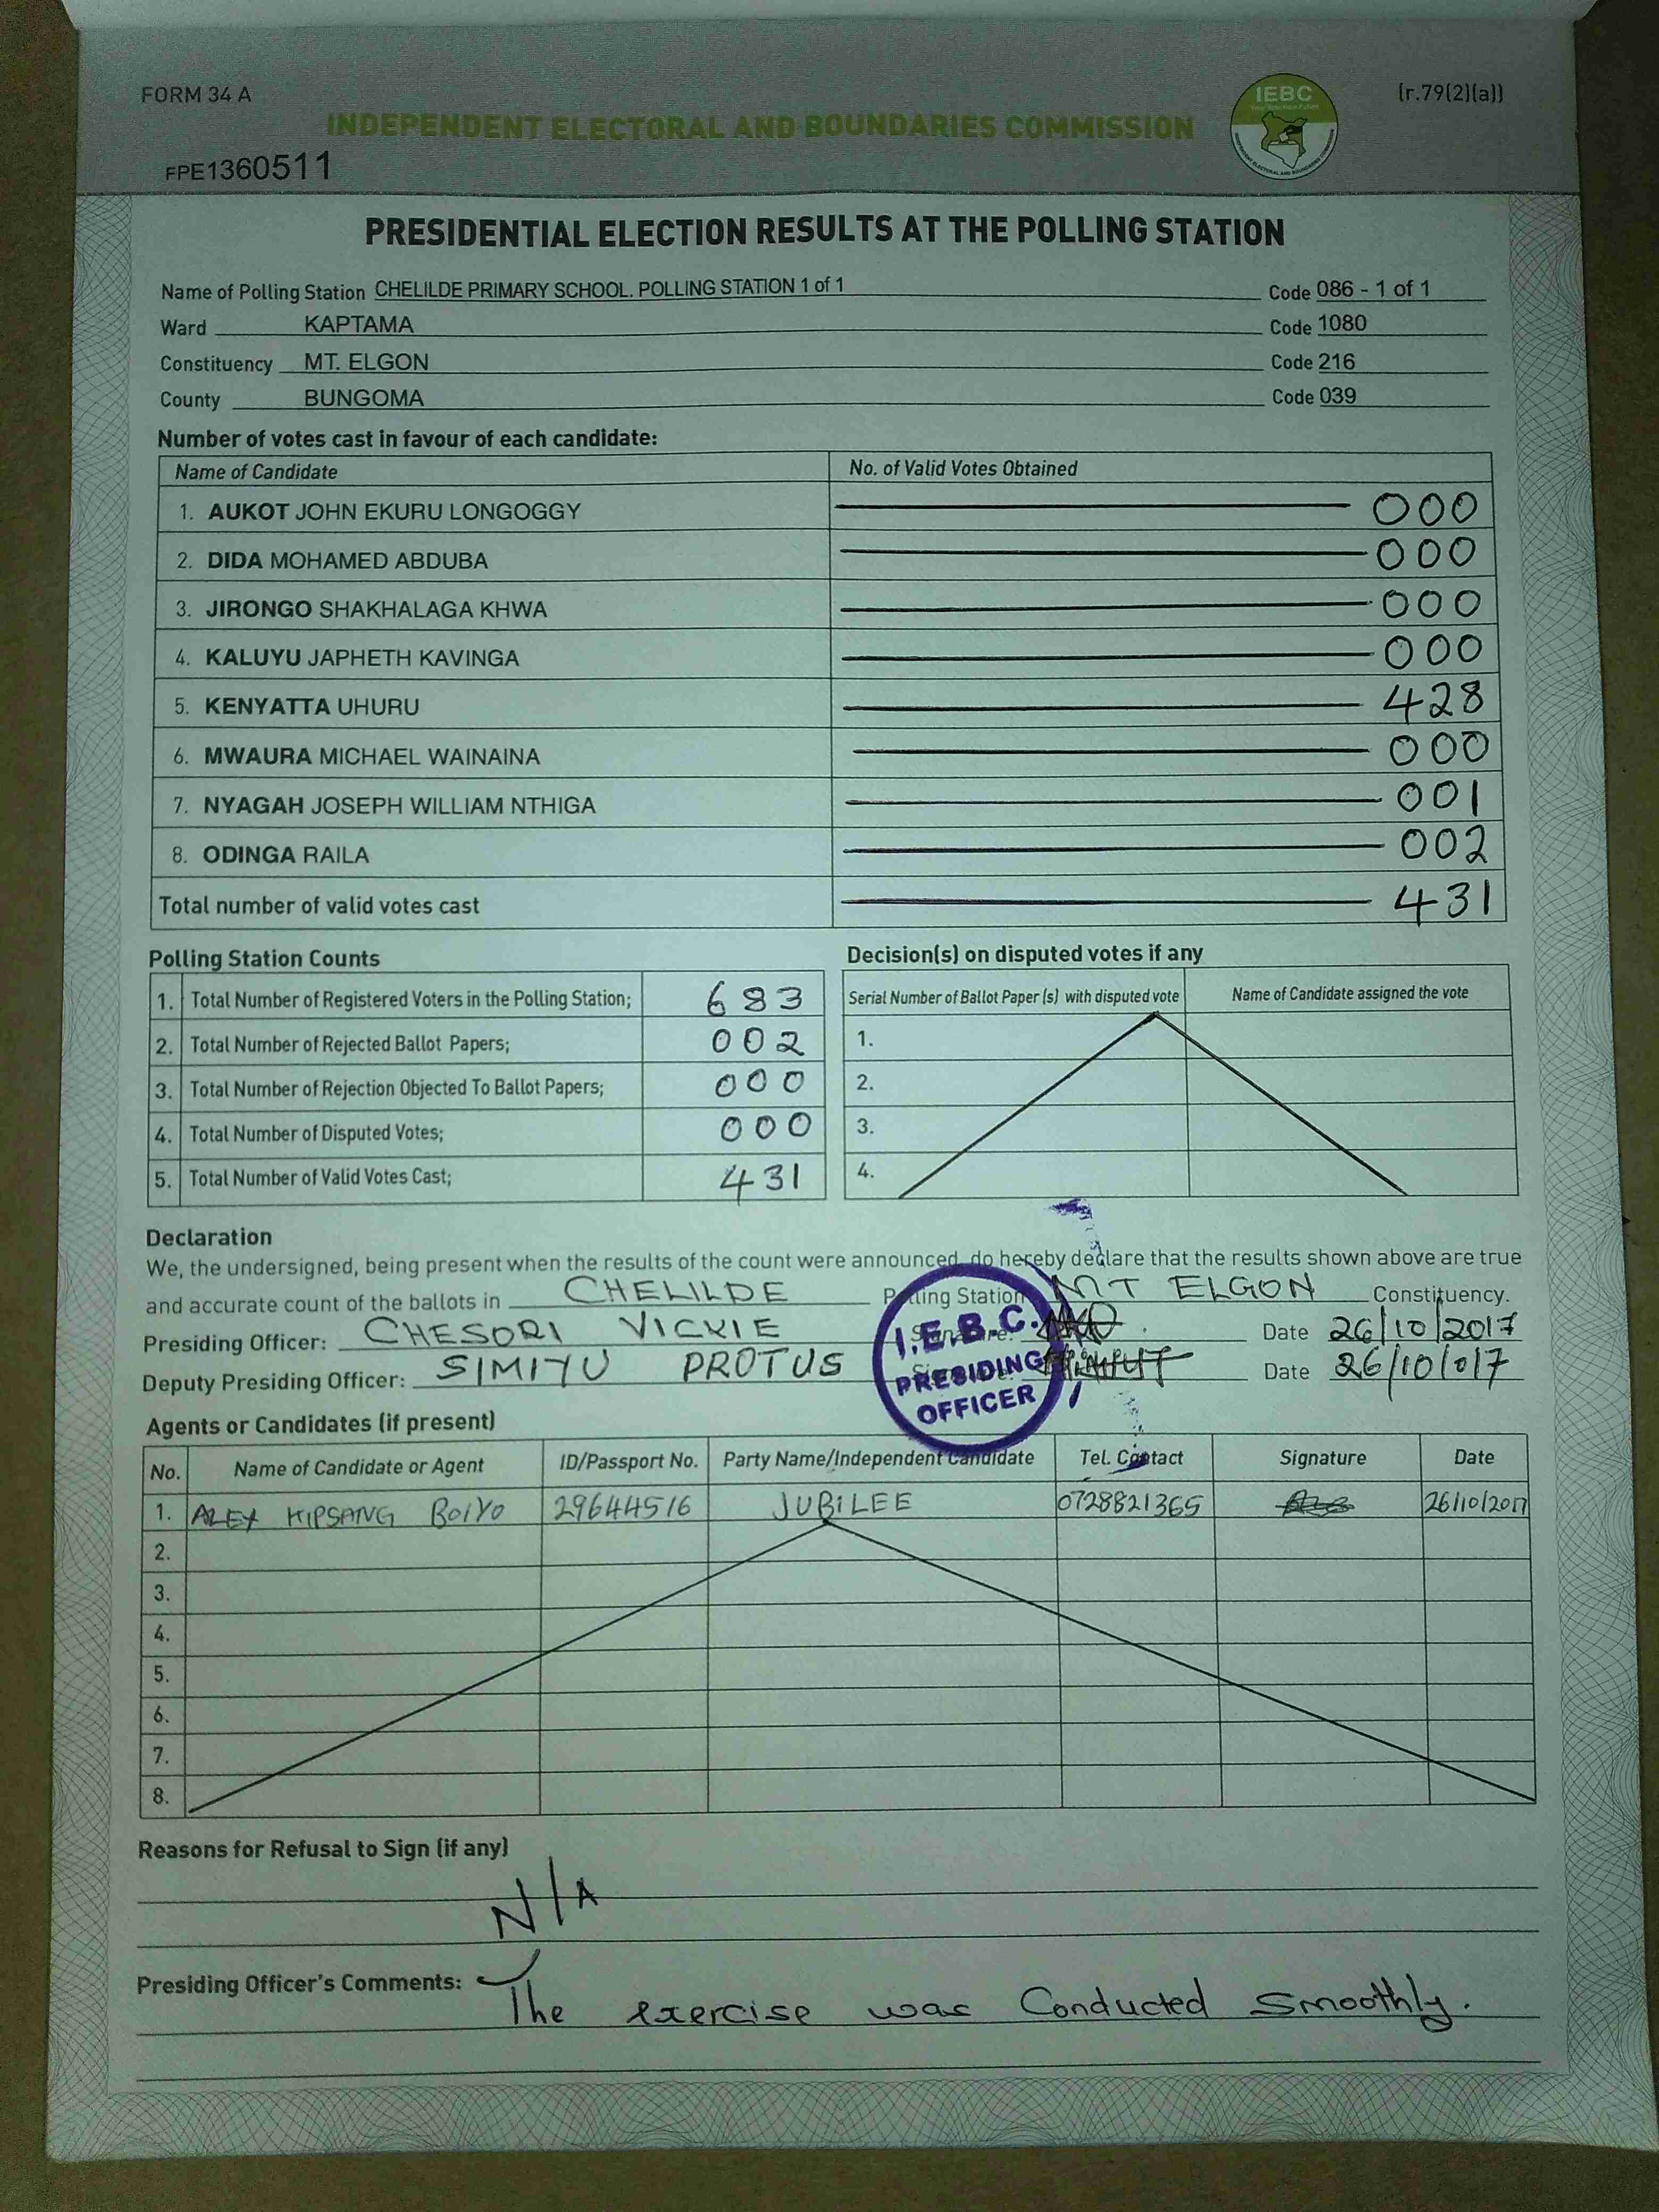 FORM 34 A
IEBC
(r.79(2)(a))
INDEPENDENT ELECTORAL AND BOUNDARIES COMMISSION
FPE1360511
PRESIDENTIAL ELECTION RESULTS AT THE POLLING STATION
Name of Polling Station CHELILDE PRIMARY SCHOOL. POLLING STATION 1 of 1 Code 086 - 1 of 1
Ward KAPTAMA Code 1080
Constituency MT. ELGON Code 216
County BUNGOMA Code 039
Number of votes cast in favour of each candidate:
Name of Candidate No. of Valid Votes Obtained
1. AUKOT JOHN EKURU LONGOGGY 000
2. DIDA MOHAMED ABDUBA 000
3. JIRONGO SHAKHALAGA KHWA 000
4. KALUYU JAPHETH KAVINGA 000
5. KENYATTA UHURU 428
6. MWAURA MICHAEL WAINAINA 000
7. NYAGAH JOSEPH WILLIAM NTHIGA 001
8. ODINGA RAILA 002
Total number of valid votes cast 431
Polling Station Counts
1. Total Number of Registered Voters in the Polling Station; 683
2. Total Number of Rejected Ballot Papers; 002
3. Total Number of Rejection Objected To Ballot Papers; 000
4. Total Number of Disputed Votes; 000
5. Total Number of Valid Votes Cast; 431
Decision(s) on disputed votes if any
Serial Number of Ballot Paper (s) with disputed vote Name of Candidate assigned the vote
1.
2.
3.
4.
Declaration
We, the undersigned, being present when the results of the count were announced, do hereby declare that the results shown above are true
and accurate count of the ballots in CHELILDE Polling Station MT ELGON Constituency.
Presiding Officer: CHESORI VICKIE Date 26/10/2017
Deputy Presiding Officer: SIMIYU PROTUS Date 26/10/017
I.E.B.C.
PRESIDING
OFFICER
Agents or Candidates (if present)
No. Name of Candidate or Agent ID/Passport No. Party Name/Independent Candidate Tel. Contact Signature Date
1. ALEX KIPSANG BOIYO 29644516 JUBILEE 0728821365 26/10/2017
2.
3.
4.
5.
6.
7.
8.
Reasons for Refusal to Sign (if any)
N/A
Presiding Officer's Comments: The exercise was Conducted Smoothly.